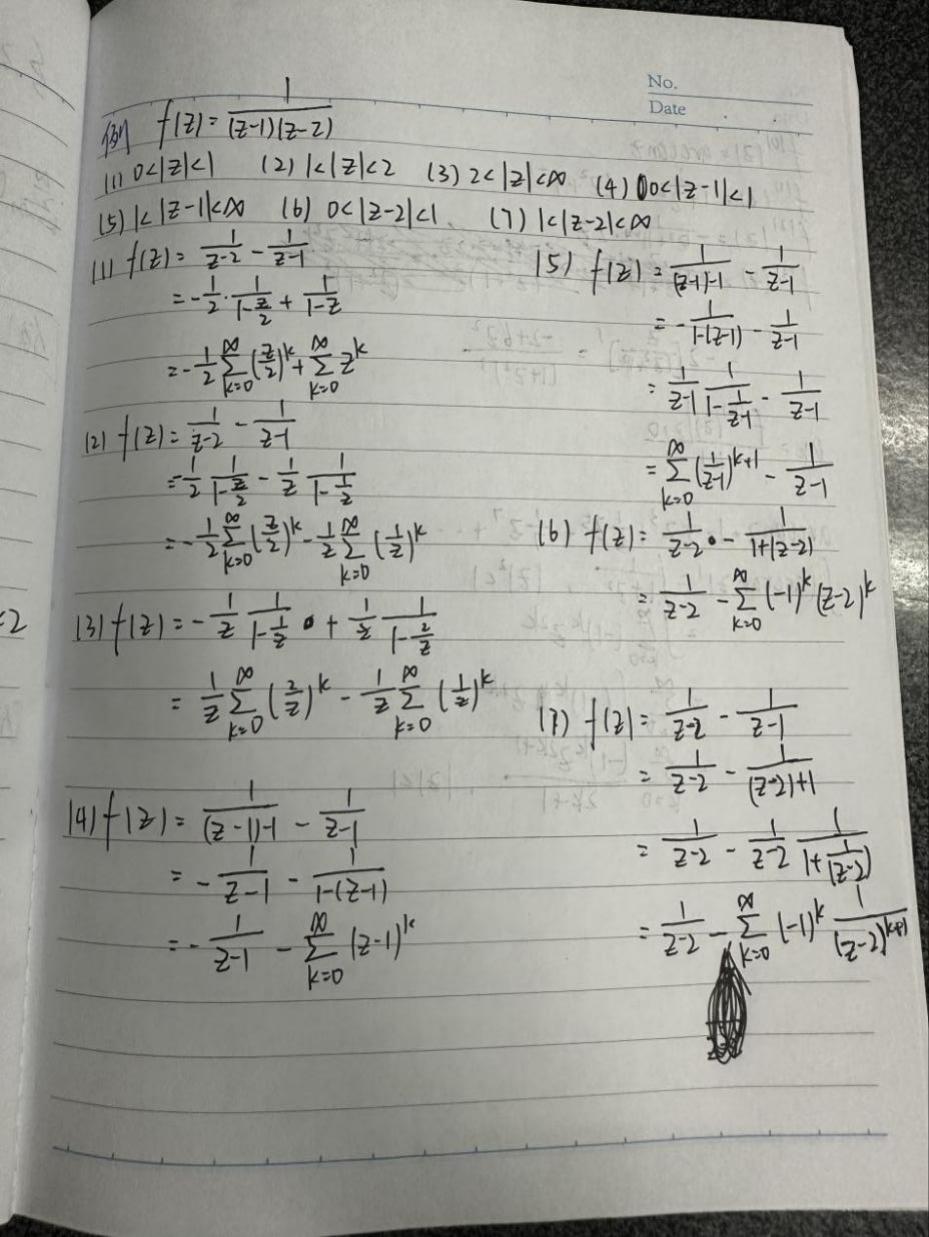 No.
Date
例 f(z)=\frac{1}{(z-1)(z-2)}
(1) 0<|z|<1 (2) 1<|z|<2 (3) 2<|z|<∞ (4) 0<|z-1|<1
(5) 1<|z-1|<∞ (6) 0<|z-2|<1 (7) 1<|z-2|<∞
(1) f(z)=\frac{1}{z-2}-\frac{1}{z-1}
=-\frac{1}{2}·\frac{1}{1-\frac{z}{2}}+\frac{1}{1-z}
=-\frac{1}{2}\sum_{k=0}^{∞}(\frac{z}{2})^k+\sum_{k=0}^{∞}z^k
(2) f(z)=\frac{1}{z-2}-\frac{1}{z-1}
=-\frac{1}{2}\frac{1}{1-\frac{z}{2}}-\frac{1}{z}\frac{1}{1-\frac{1}{z}}
=-\frac{1}{2}\sum_{k=0}^{∞}(\frac{z}{2})^k-\frac{1}{z}\sum_{k=0}^{∞}(\frac{1}{z})^k
(3) f(z)=-\frac{1}{z}\frac{1}{1-\frac{1}{z}}+\frac{1}{z}\frac{1}{1-\frac{2}{z}}
=\frac{1}{z}\sum_{k=0}^{∞}(\frac{2}{z})^k-\frac{1}{z}\sum_{k=0}^{∞}(\frac{1}{z})^k
(4) f(z)=\frac{1}{(z-1)-1}-\frac{1}{z-1}
=-\frac{1}{z-1}-\frac{1}{1-(z-1)}
=-\frac{1}{z-1}-\sum_{k=0}^{∞}(z-1)^k
(5) f(z)=\frac{1}{(z-1)-1}-\frac{1}{z-1}
=-\frac{1}{1-(z-1)}-\frac{1}{z-1}
=\frac{1}{z-1}\frac{1}{1-\frac{1}{z-1}}-\frac{1}{z-1}
=\sum_{k=0}^{∞}(\frac{1}{z-1})^{k+1}-\frac{1}{z-1}
(6) f(z)=\frac{1}{z-2}-\frac{1}{1+(z-2)}
=\frac{1}{z-2}-\sum_{k=0}^{∞}(-1)^k(z-2)^k
(7) f(z)=\frac{1}{z-2}-\frac{1}{z-1}
=\frac{1}{z-2}-\frac{1}{(z-2)+1}
=\frac{1}{z-2}-\frac{1}{z-2}\frac{1}{1+\frac{1}{(z-2)}}
=\frac{1}{z-2}-\sum_{k=0}^{∞}(-1)^k\frac{1}{(z-2)^{k+1}}